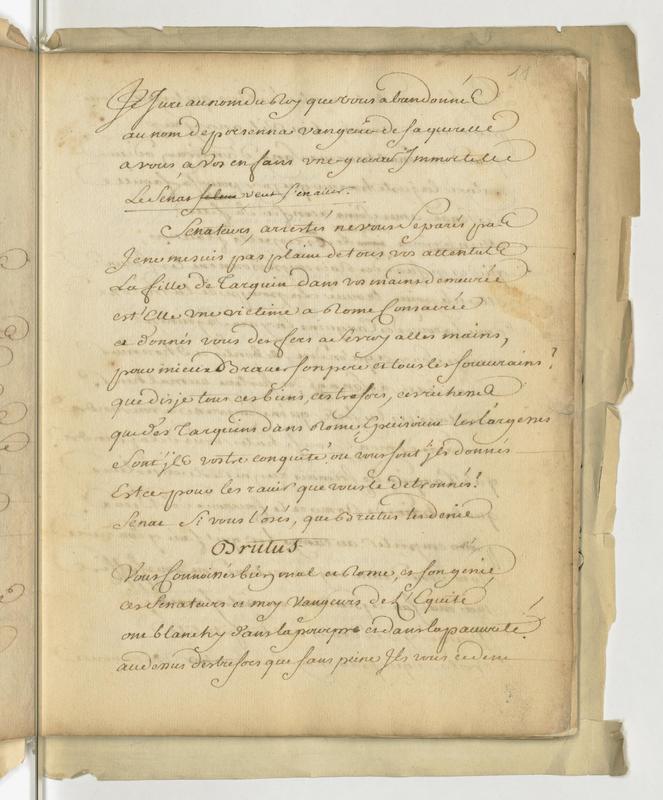 11
Je Jure au nom du Roy que vous abandonnés
au nom de porsenna vangeur de sa querelle
a vous a vos enfans une guerre Immortelle
Le Senat se leve veut s'en aller.
Senateurs, arrestés ne vous separés pas
Je ne me suis pas plaint de tous vos attentats
La fille de Tarquin dans vos mains demeurée
est Elle une victime a Rome Consacrée
et donnés vous des fers a ses royalles mains,
pour mieux Braver son pere et tous les souverains?
que dis je tous ces biens, ces tresors, ces richesses
que des Tarquins dans Rome Epuisoient les largesses
Sont jls vostre conquête ou vous sont jls donnés
Est ce pour les ravir que vous le detronnés!
Senat Si vous l'osés, que Brutus les denie
Brutus
Vous Connoissés bien mal et Rome, et son genie
ces Senateurs et moy Vangeurs de L'Equité
ont blanchy dans la pourpre et dans la pauvreté!
au dessus des tresors que sans peine Jls vous cedent